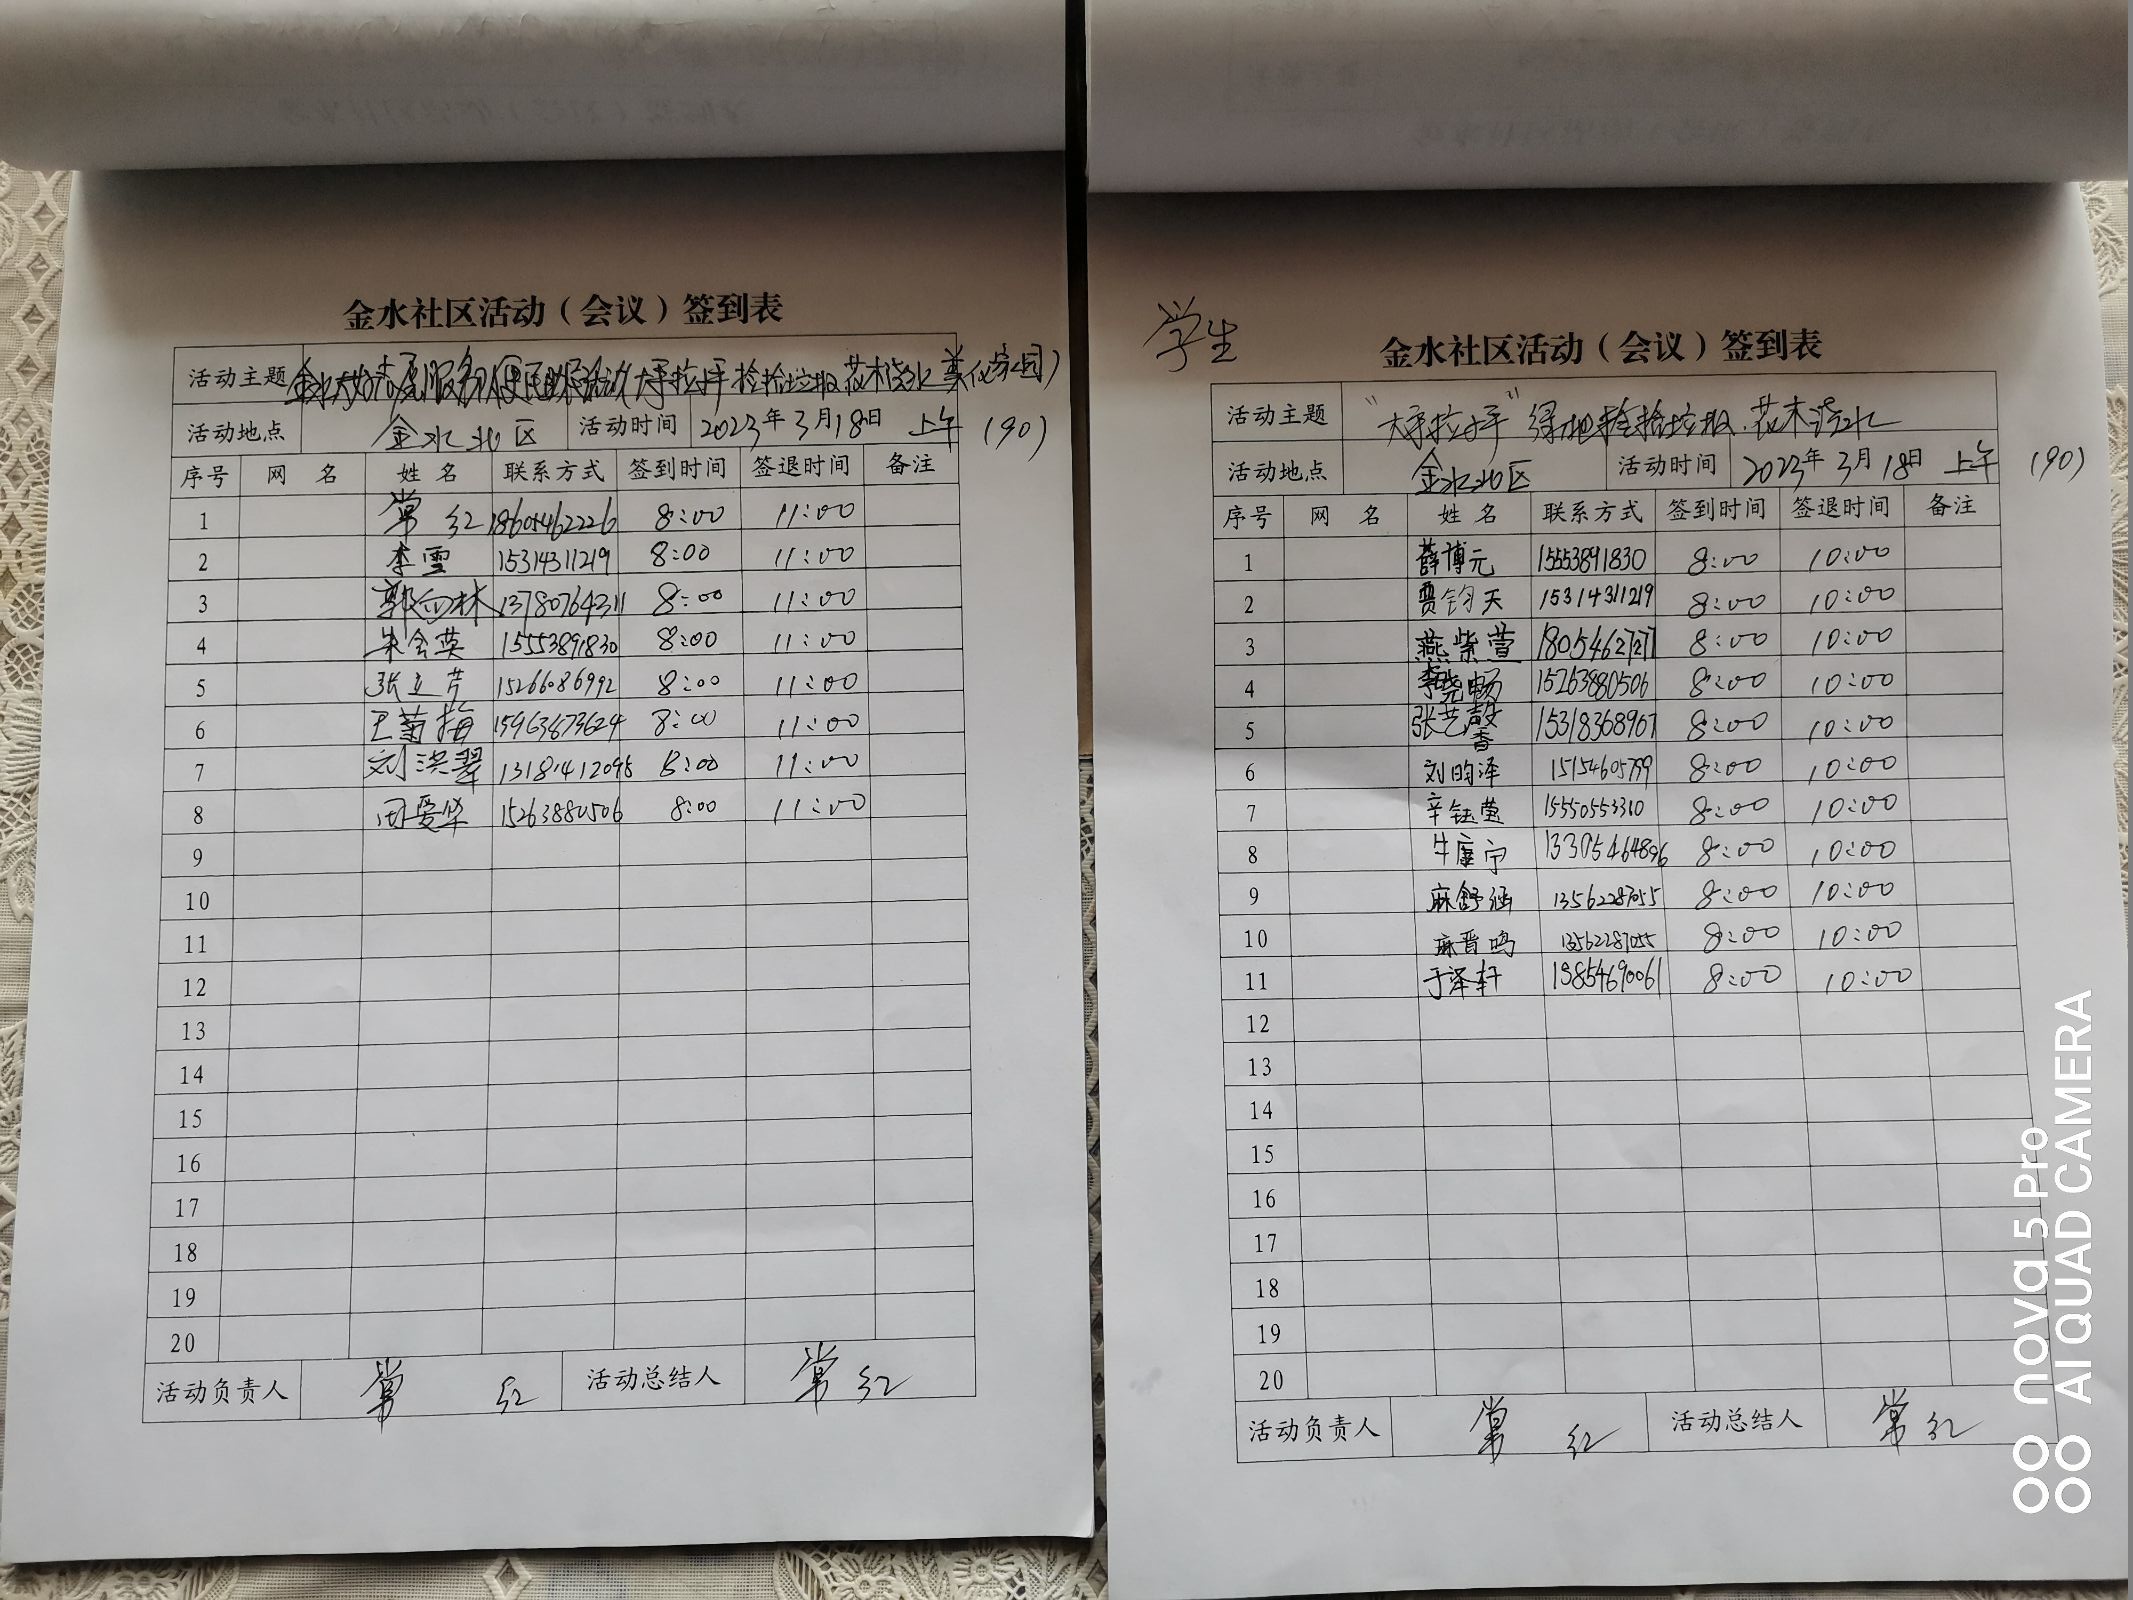 金水社区活动（会议）签到表
活动主题 大手拉小手 捡拾垃圾 花木浇水 美化家园）
活动地点 金水北区 活动时间 2023年3月18日 上午 (90)
序号 网 名 姓 名 联系方式 签到时间 签退时间 备注
1 常 红 18605462226 8:00 11:00
2 李雪 15314311219 8:00 11:00
3 郭向林 13780764311 8:00 11:00
4 朱会英 15553891830 8:00 11:00
5 张立芹 15266086992 8:00 11:00
6 王菊梅 15963673624 8:00 11:00
7 刘洪翠 13181412098 8:00 11:00
8 田爱华 15263880506 8:00 11:00
9
10
11
12
13
14
15
16
17
18
19
20
活动负责人 常 红 活动总结人 常红
学生
金水社区活动（会议）签到表
活动主题 “大手拉小手” 绿地捡拾垃圾.花木浇水
活动地点 金水北区 活动时间 2023年3月18日 上午 (90)
序号 网 名 姓 名 联系方式 签到时间 签退时间 备注
1 薛博元 15553891830 8:00 10:00
2 贾钧天 15314311219 8:00 10:00
3 燕紫萱 18054627277 8:00 10:00
4 李晓畅 15263880506 8:00 10:00
5 张艺馨 15318368967 8:00 10:00
6 刘昀泽 15154605799 8:00 10:00
7 辛钰莹 15550553310 8:00 10:00
8 牛康宁 13305464896 8:00 10:00
9 麻舒涵 13562287055 8:00 10:00
10 麻晋鸣 13562287055 8:00 10:00
11 于泽轩 13854690061 8:00 10:00
12
13
14
15
16
17
18
19
20
活动负责人 常 红 活动总结人 常红
nova 5 Pro
AI QUAD CAMERA